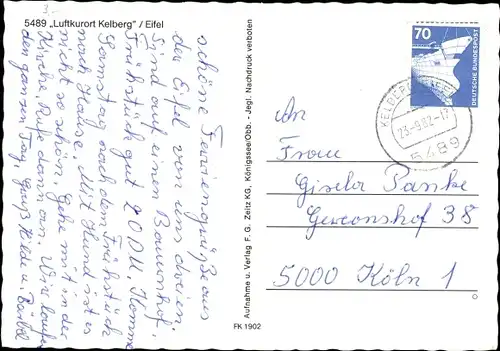 3.-
5489 „Luftkurort Kelberg" / Eifel
schöne Feriengrüße aus
der Eifel von uns dreien.
Sind auf einen Bauernhof,
Frühstück gut 20 DM. Komme
Samstag nach dem Frühstück
nach Hause. Mit Hund ist es
nicht so schön. Gehe mit in der
Kirche. Rufe dann an. Wir laufen
den ganzen Tag. Gruß Helde u. Bärbel
Aufnahme u. Verlag F. G. Zeitz KG, Königssee/Obb. - Jegl. Nachdruck verboten
FK 1902
70
DEUTSCHE BUNDESPOST
KELBERG
23.-9.82.-17
5489
An
Frau
Gisela Panke
Gereonshof 38
5000 Köln 1